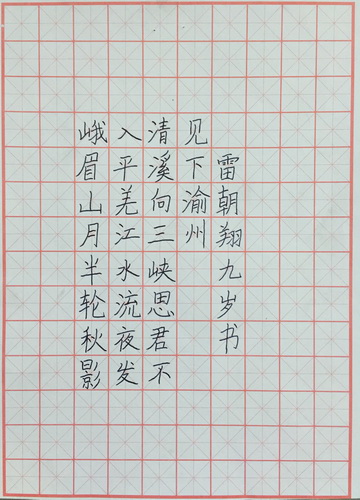 峨眉山月半轮秋影
入平羌江水流夜发
清溪向三峡思君不
见下渝州
雷朝翔九岁书